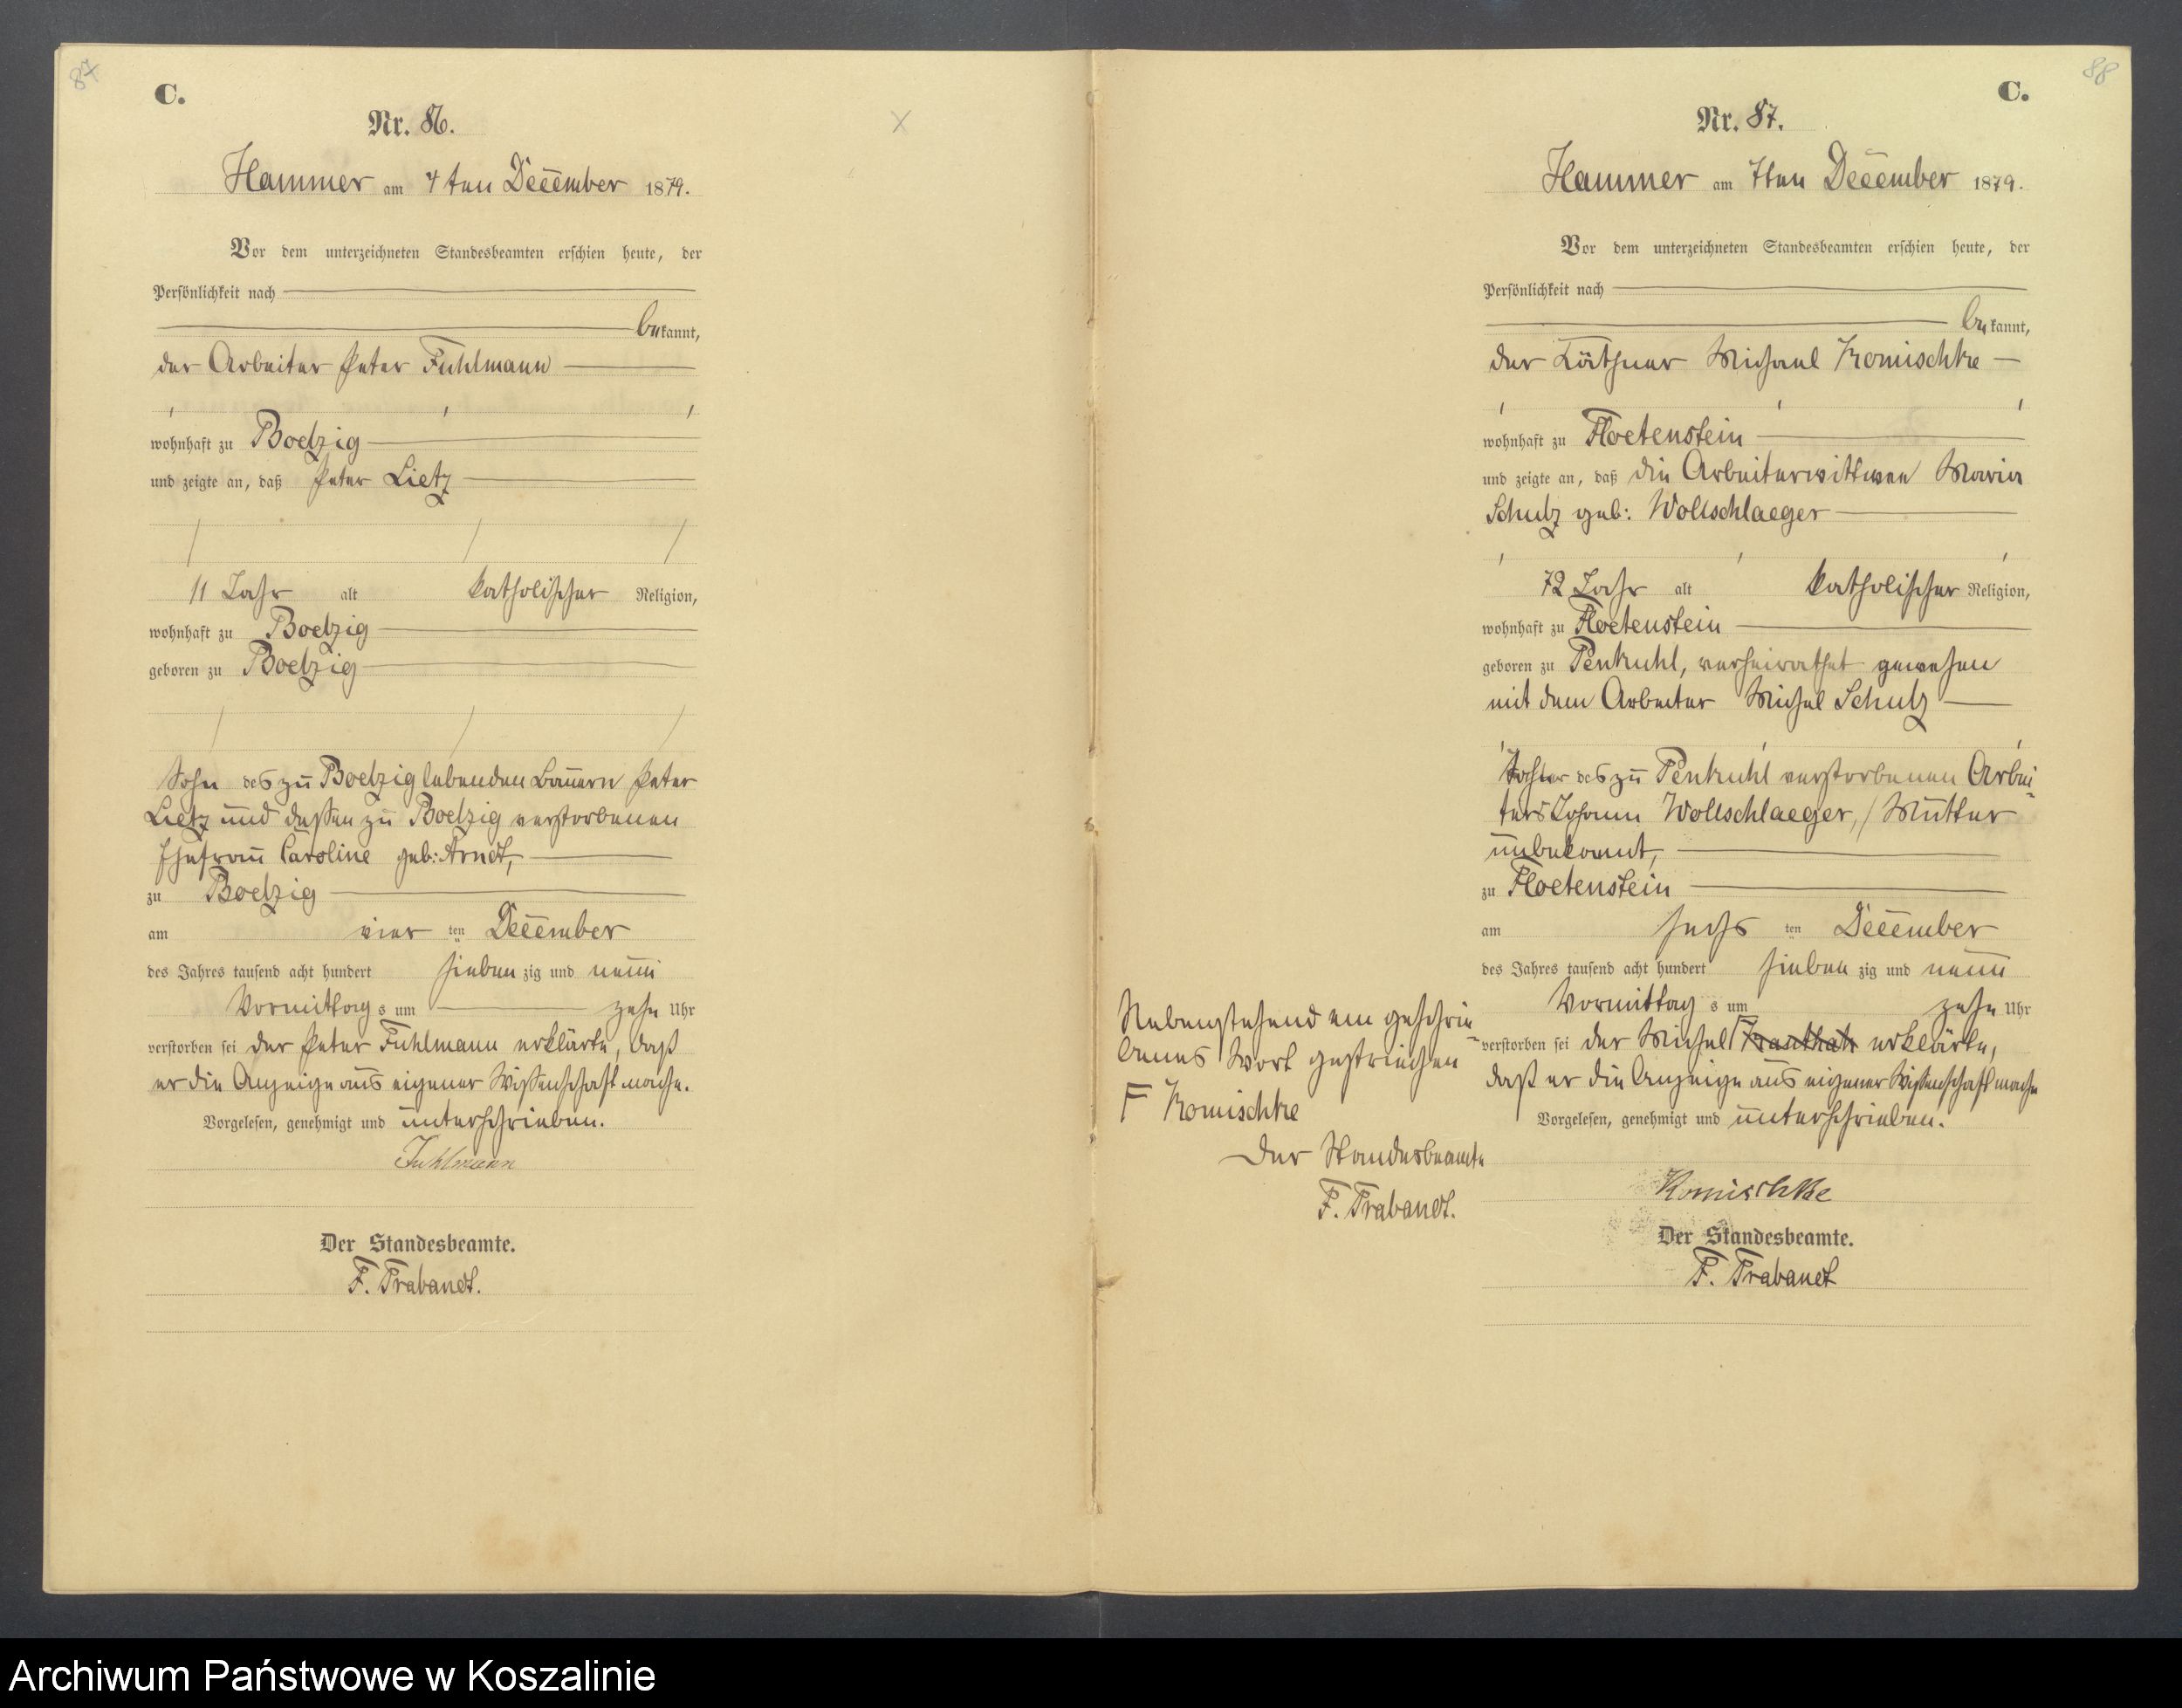 87
C.
Nr. 86.
Hammer am 4ten December 1879.
Vor dem unterzeichneten Standesbeamten erschien heute, der
Persönlichkeit nach
bekannt,
der Arbeiter Peter Fuhlmann
wohnhaft zu Boelzig
und zeigte an, daß Peter Lietz
11 Jahr alt katholischer Religion,
wohnhaft zu Boelzig
geboren zu Boelzig
Sohn des zu Boelzig lebenden Bauern Peter
Lietz und dessen zu Boelzig verstorbenen
Ehefrau Caroline geb: Arndt,
zu Boelzig
am vier ten December
des Jahres tausend acht hundert sieben zig und neun
Vormittag s um zehn Uhr
verstorben sei der Peter Fuhlmann erklärte, daß
er die Anzeige aus eigener Wissenschaft mache.
Vorgelesen, genehmigt und unterschrieben.
Fuhlmann
Der Standesbeamte.
F. Trabandt.
88
C.
Nr. 87.
Hammer am 7ten December 1879.
Vor dem unterzeichneten Standesbeamten erschien heute, der
Persönlichkeit nach
bekannt,
der Käthner Michael Komischke
wohnhaft zu Floetenstein
und zeigte an, daß die Arbeiterwittwee Maria
Schulz geb: Wollschlaeger
72 Jahr alt katholischer Religion,
wohnhaft zu Floetenstein
geboren zu Penkuhl, verheirathet gewesen
mit dem Arbeiter Michel Schulz
Tochter des zu Penkuhl verstorbenen Arbei
ters Johann Wollschlaeger, / Mutter
unbekannt,
zu Floetenstein
am sechs ten December
des Jahres tausend acht hundert sieben zig und neun
Vormittag s um zehn Uhr
verstorben sei der Michel erklärte,
daß er die Anzeige aus eigener Wissenschaft mache
Vorgelesen, genehmigt und unterschrieben.
Komischke
Der Standesbeamte.
F. Trabandt
Nebenstehend ein geschrie
benes Wort gestrichen
F Komischke
Der Standesbeamte
F. Trabandt.
Archiwum Państwowe w Koszalinie